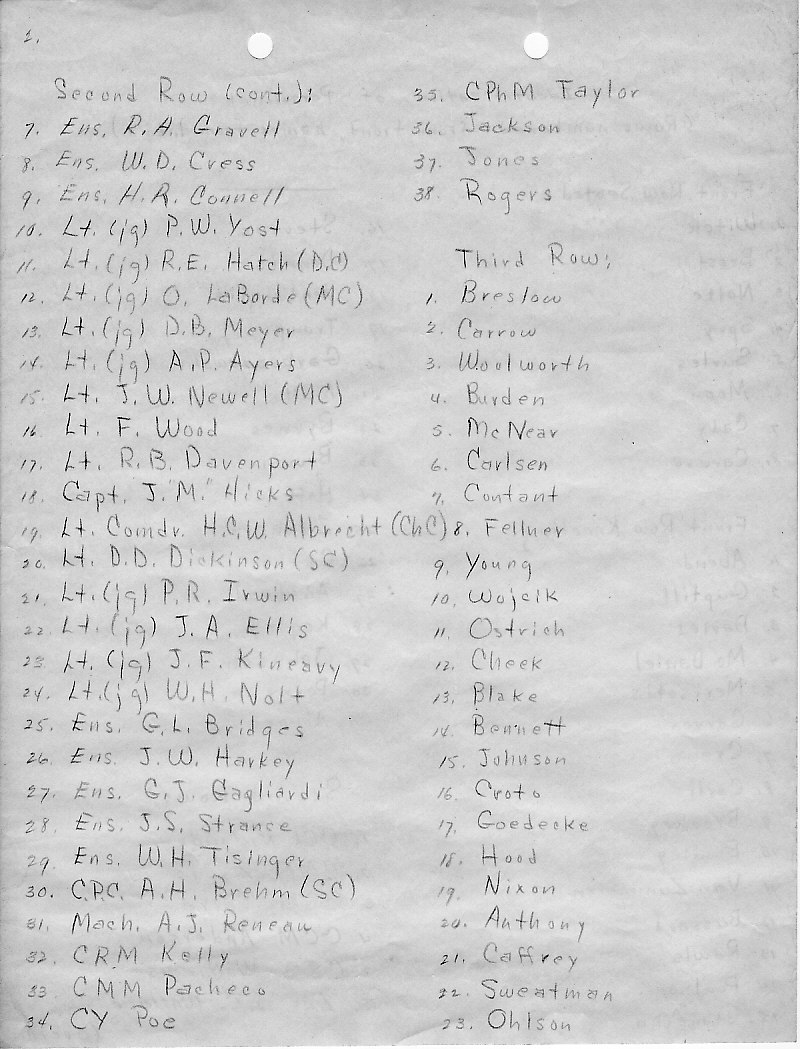 2.
Second Row (cont.):
7. Ens. R.A. Gravell
8. Ens. W.D. Cress
9. Ens. H.R. Connell
10. Lt. (jg) P.W. Yost
11. Lt. (jg) R.E. Hatch (D.C)
12. Lt. (jg) O. LaBorde (MC)
13. Lt. (jg) D.B. Meyer
14. Lt. (jg) A.P. Ayers
15. Lt. J.W. Newell (MC)
16. Lt. F. Wood
17. Lt. R.B. Davenport
18. Capt. J."M." Hicks
19. Lt. Comdr. H.C.W. Albrecht (ChC)
20. Lt. D.D. Dickinson (SC)
21. Lt. (jg) P.R. Irwin
22. Lt. (jg) J.A. Ellis
23. Lt. (jg) J.F. Kineavy
24. Lt. (jg) W.H. Nolt
25. Ens. G.L. Bridges
26. Ens. J.W. Harkey
27. Ens. G.J. Gagliardi
28. Ens. J.S. Strance
29. Ens. W.H. Tisinger
30. C.P.C. A.H. Brehm (SC)
31. Mach. A.J. Reneau
32. CRM Kelly
33 CMM Pacheco
34. CY Poe
35. CPhM Taylor
36. Jackson
37. Jones
38. Rogers
Third Row:
1. Breslow
2. Carrow
3. Woolworth
4. Burden
5. McNear
6. Carlsen
7. Contant
8. Fellner
9. Young
10. Wojcik
11. Ostrich
12. Cheek
13. Blake
14. Bennett
15. Johnson
16. Croto
17. Goedecke
18. Hood
19. Nixon
20. Anthony
21. Caffrey
22. Sweatman
23. Ohlson